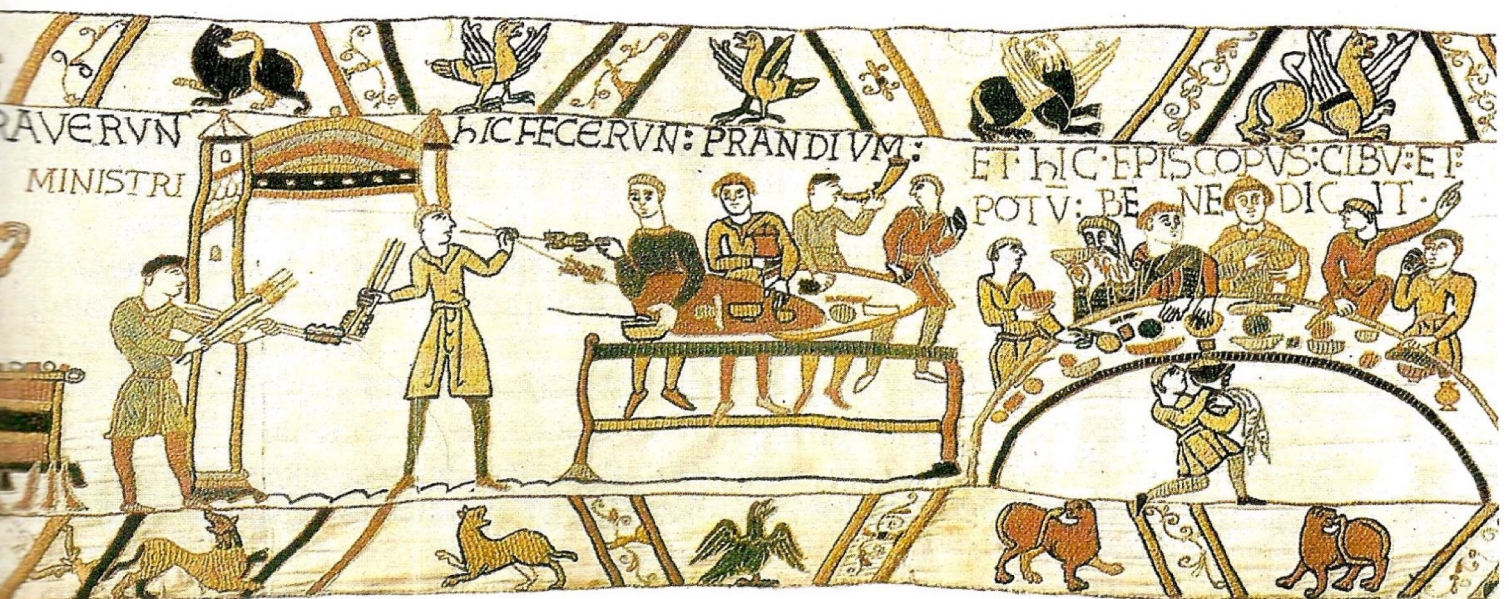 RAVERVN
MINISTRI
hIC FECERVN: PRANDIVM:
ET· hIC· EPISCOPVS: CIBV: ET:
POTV: BENEDICIT·